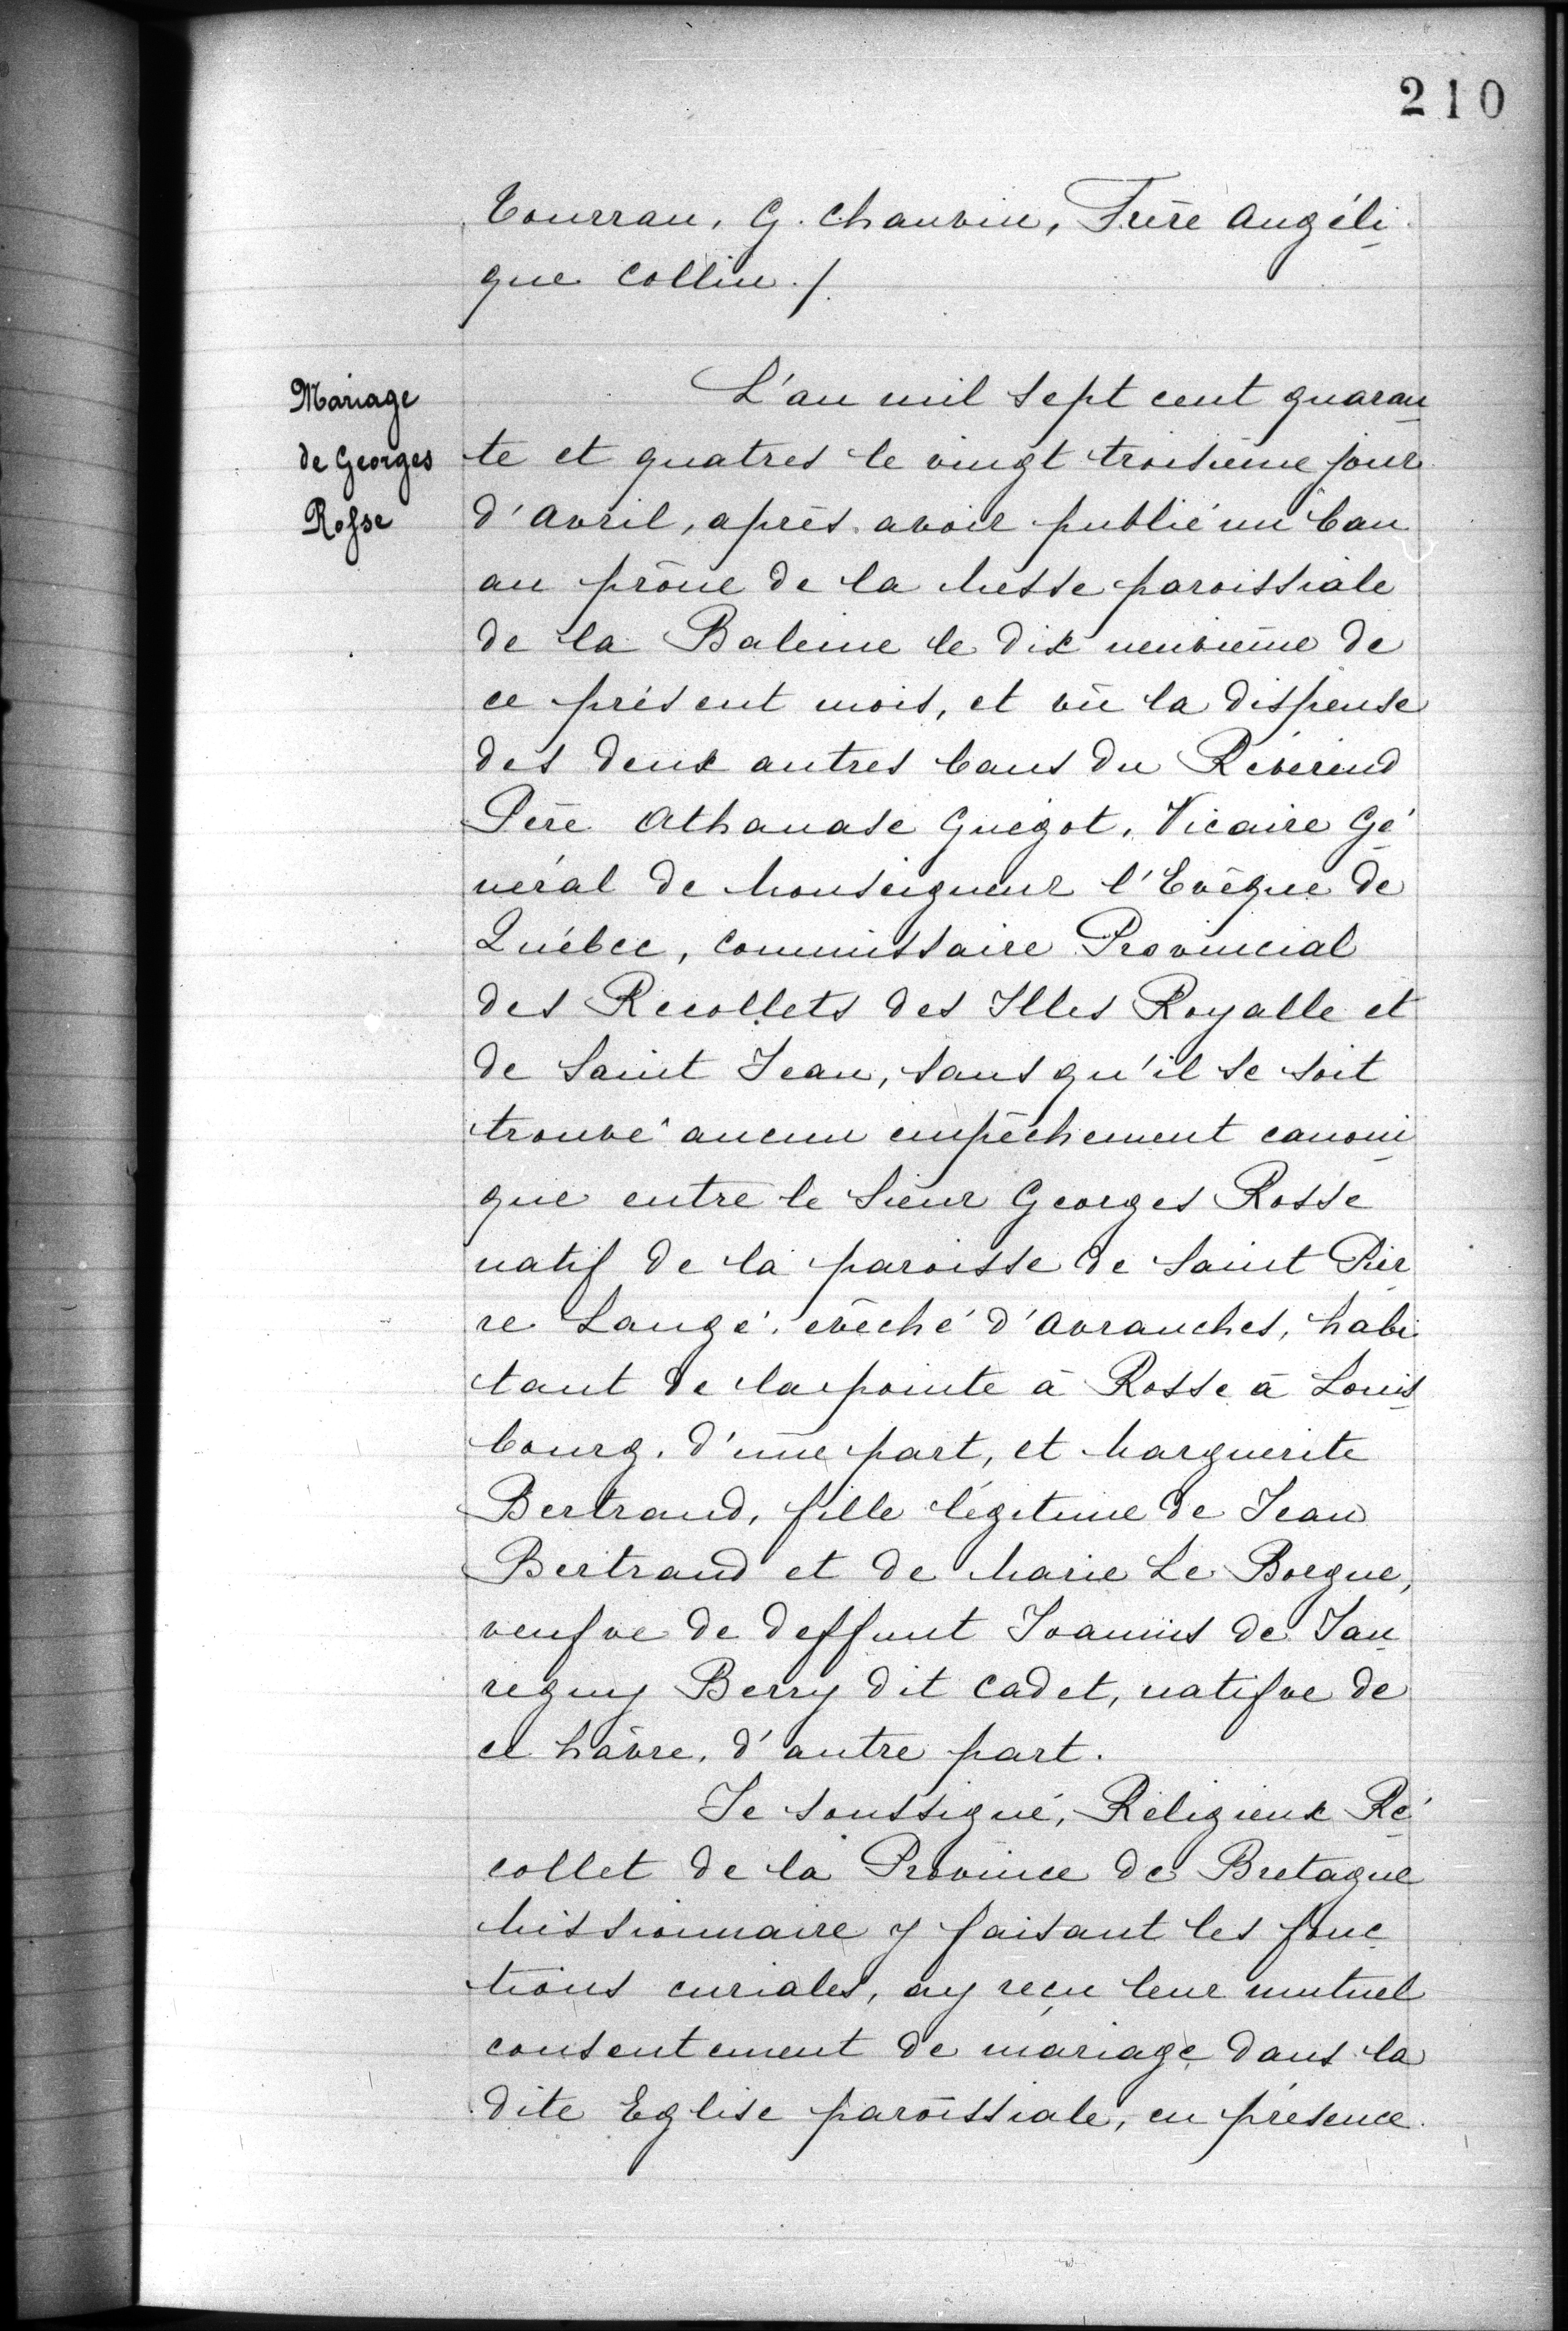 210
Tourrau, G. Chauvin, Frère Angéli
que Collin./.
Mariage
de Georges
Rosse
L'an mil sept cent quaran
te et quatres le vingt troisième jour
d'Avril, après avoir publié un ban
au prône de la Messe paroissiale
de la Baleine le dix neuvième de
ce présent mois, et vû la dispense
des deux autres bans du Révérend
Père Athanase Guégot, Vicaire Gé
néral de Monseigneur l'Evêque de
Québec, Commissaire Provincial
des Recollets des Illes Royalle et
de Saint Jean, sans qu'il se soit
trouvé aucun empêchement canoni
que entre le Sieur Georges Rosse
natif de la paroisse de Saint Pier
re Langé, evêché d'Avranches, habi
tant de la pointe à Rosse à Louis
bourg, d'une part, et Marguerite
Bertrand, fille légitime de Jean
Bertrand et de Marie Le Boegue,
veufve de deffunt Joannis de Jau
reguy Berry dit Cadet, natifve de
ce hâvre, d'autre part.
Je soussigné, Religieux Ré
collet de la Province de Bretagne
Missionnaire y faisant les fonc
tions curiales, ay reçu leur mutuel
consentement de mariage dans la
dite Eglise paroissiale, en présence